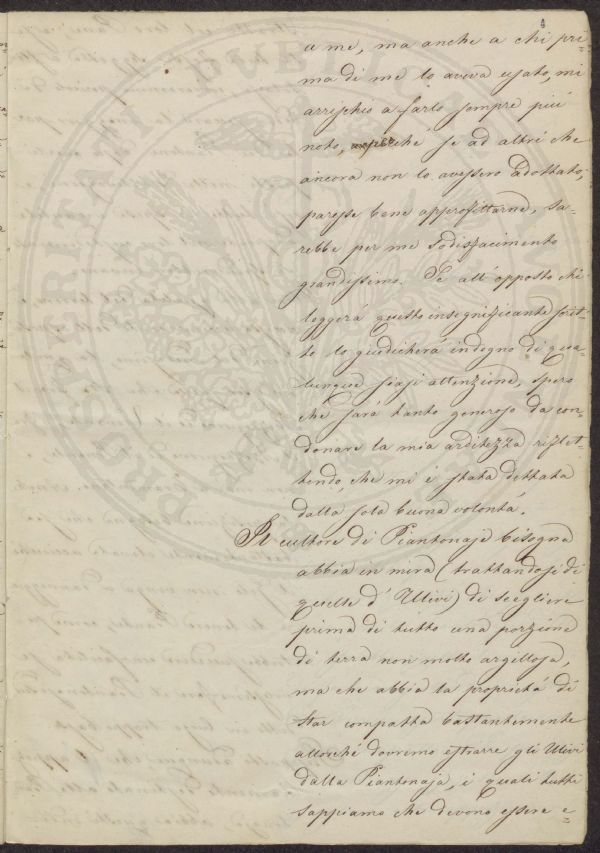 4
a me, ma anche a chi pri=
ma di me lo aveva usato, mi
arrischio a farlo sempre più
noto, perché se ad altri che
ancora non lo avessero adottato,
paresse bene approfittarne, sa=
rebbe per me sodisfacimento
grandissimo. Se all'opposto chi
leggerà questo insegnificante scrit=
to lo giudicherà indegno di qua=
lunque siasi attenzione, spero
che sarà tanto generoso da con=
donare la mia arditezza riflet=
tendo, che mi è stata dettata
dalla sola buona volontà.
Il cultore di Piantonaje bisogna
abbia in mira (trattandosi di
quelle d'Ulivi) di scegliere
prima di tutto una porzione
di terra non molto argillosa,
ma che abbia la proprietà di
star compatta bastantemente
allorché dovremo estrarre gli Ulivi
dalla Piantonaja, i quali tutti
sappiamo che devono essere e=
PROSPERITATI PVBLICAE AVGENDAE